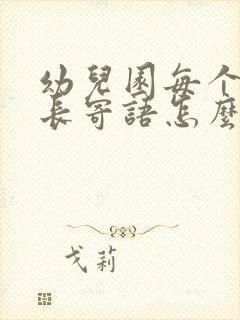 幼兒園每个
長寄語怎麼
戈莉